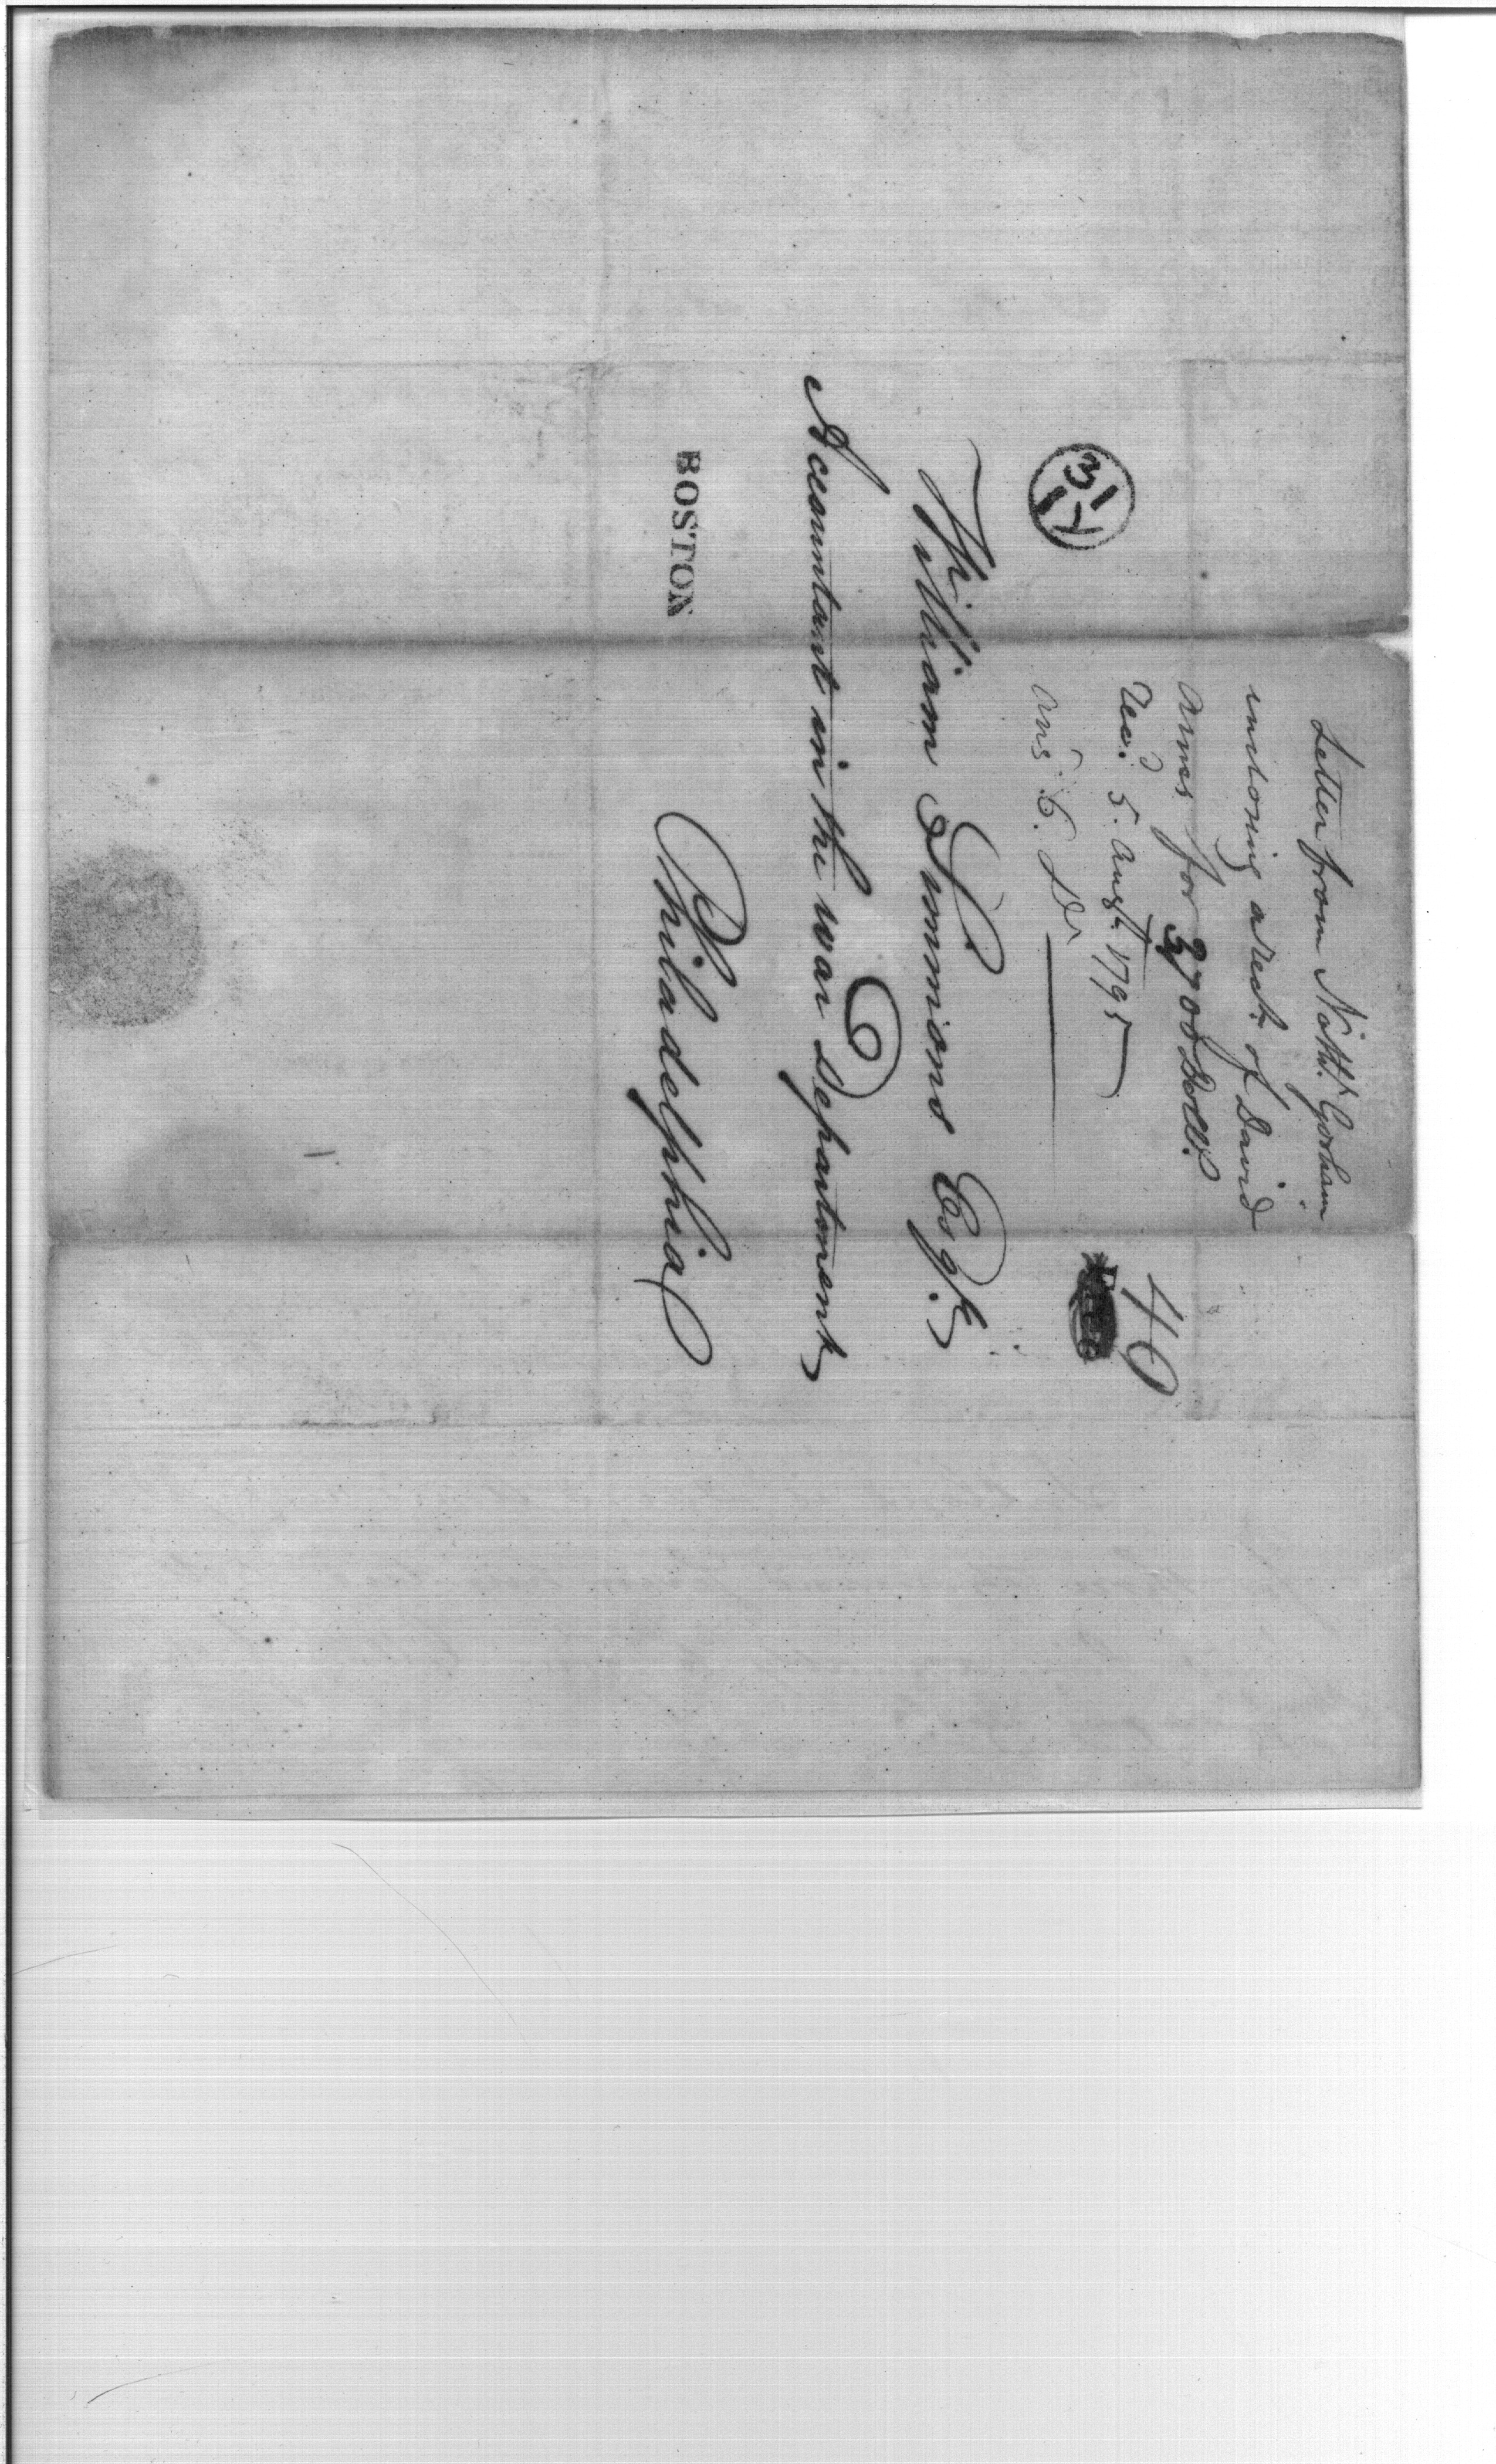 Letter from Nathl. Gorham
inclosing a rect. of David
Ames for 3700 Dolls.
Recd. 5. Augt. 1795
Ans. 6. Do
40
31
William Simmons Esqr.
Accountant in the war Department
BOSTON
Philadelphia